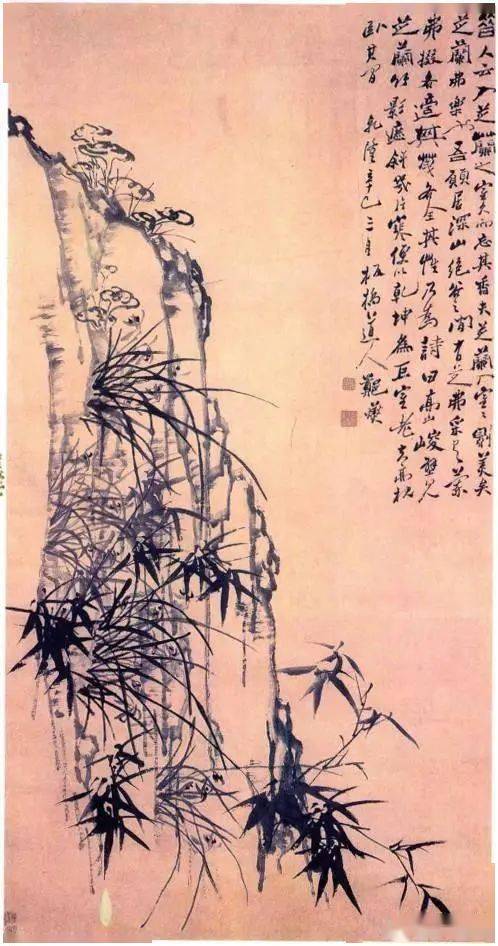 昔人云入芝蘭之室而忘其香夫芝蘭入室室則美矣
芝蘭弗樂也吾願居深山絕谷之間有芝弗采有蘭
弗掇各適其天各全其性乃為詩曰高山峻壁見
芝蘭竹影遮斜幾片寒便以乾坤為巨室老夫高枕
臥其間 乾隆辛巳三月板橋道人鄭燮